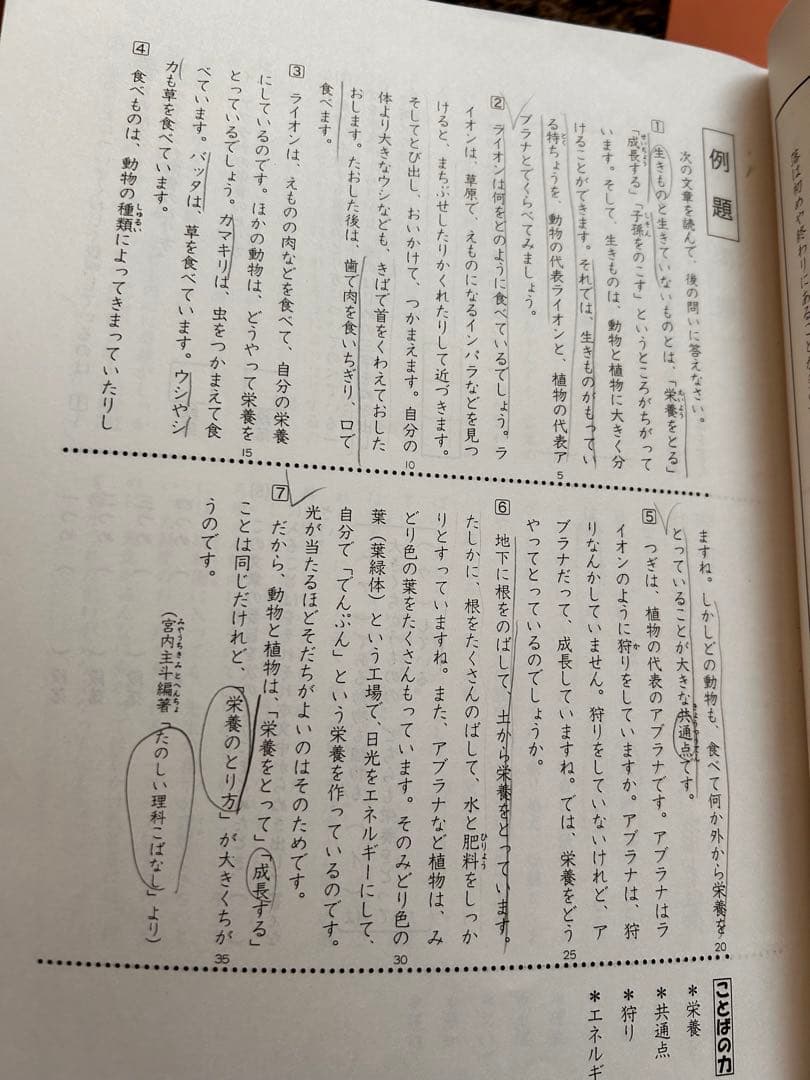 例題
次の文章を読んで、後の問いに答えなさい。
1 生きものと生きていないものとは、「栄養をとる」
「成長する」「子孫をのこす」というところがちがって
います。そして、生きものは、動物と植物に大きく分
けることができます。それでは、生きものがもってい
る特ちょうを、動物の代表ライオンと、植物の代表ア
ブラナとでくらべてみましょう。
2 ライオンは何をどのように食べているでしょう。ラ
イオンは、草原で、えものになるインパラなどを見つ
けると、まちぶせしたりかくれたりして近づきます。
そしてとび出し、おいかけて、つかまえます。自分の
体より大きなウシなども、きばで首をくわえておした
おします。たおした後は、歯で肉を食いちぎり、口で
食べます。
3 ライオンは、えものの肉などを食べて、自分の栄養
にしているのです。ほかの動物は、どうやって栄養を
とっているでしょう。カマキリは、虫をつかまえて食
べています。バッタは、草を食べています。ウシやシ
カも草を食べています。
4 食べものは、動物の種類によってきまっていたりし
ますね。しかしどの動物も、食べて何か外から栄養を
とっていることが大きな共通点です。
5 つぎは、植物の代表のアブラナです。アブラナはラ
イオンのように狩りをしていますか。アブラナは、狩
りなんかしていません。狩りをしていないけれど、ア
ブラナだって、成長していますね。では、栄養をどう
やってとっているのでしょうか。
6 地下に根をのばして、土から栄養をとっています。
たしかに、根をたくさんのばして、水と肥料をしっか
りとすっていますね。また、アブラナなど植物は、み
どり色の葉をたくさんもっています。そのみどり色の
葉(葉緑体)という工場で、日光をエネルギーにして、
自分で「でんぷん」という栄養を作っているのです。
光が当たるほどそだちがよいのはそのためです。
7 だから、動物と植物は、「栄養をとって」「成長する」
ことは同じだけれど、「栄養のとり方」が大きくちが
うのです。
(宮内主斗編著「たのしい理科こばなし」より)
5
10
15
20
25
30
35
ことばの力
*栄養
*共通点
*狩り
*エネルギ